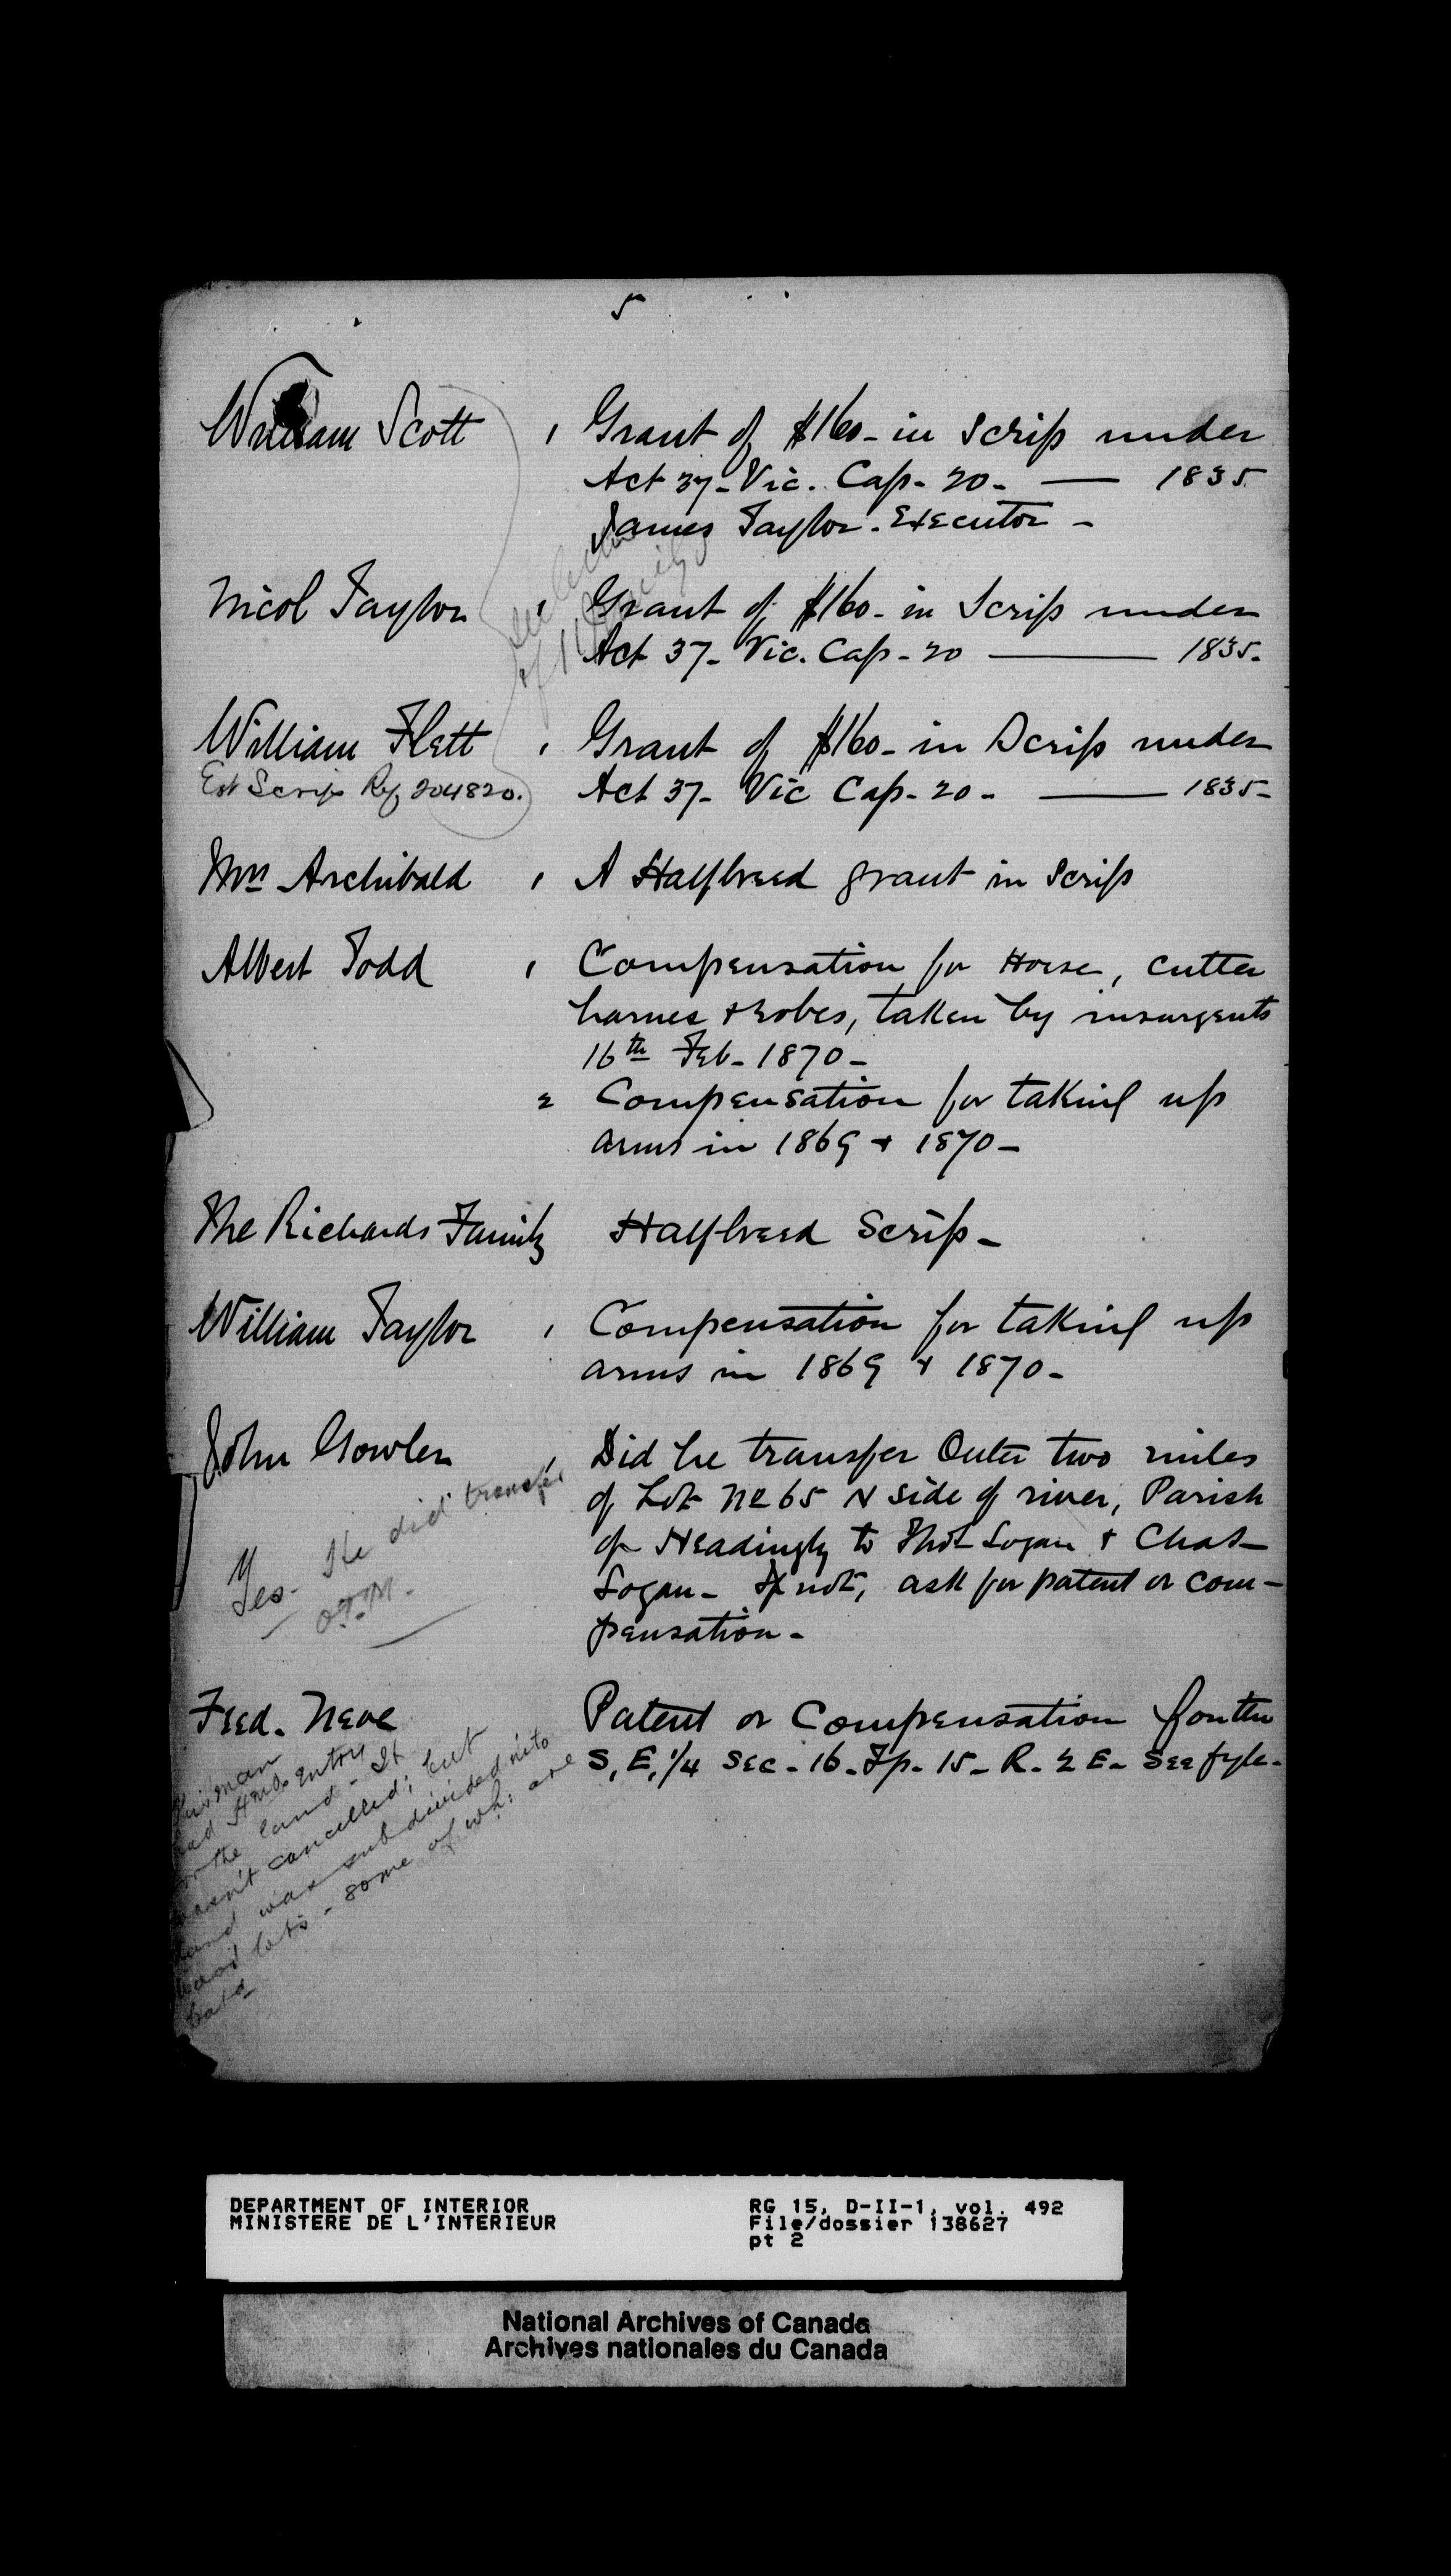 5
William Scott , Grant of $160- in Scrip under
Act 37- Vic. Cap- 20- — 1835.
James Taylor. Executor -
Nicol Taylor , Grant of $160- in Scrip under
Act 37- Vic. Cap- 20 — 1835-
William Flett , Grant of $160- in Scrip under
Ext Scrip Ref 204820. Act 37- Vic Cap- 20- — 1835-
Mrs Archibald , A Halfbreed grant in Scrip
Albert Todd , Compensation for Horse, cutter
harnes & robes, taken by insurgents
16th Feb- 1870-
2 Compensation for taking up
arms in 1869 & 1870-
The Richards Family Halfbreed Scrip-
William Taylor , Compensation for taking up
arms in 1869 & 1870-
John Gowler , Did he transfer Outer two miles
of Lot No 65 N side of river, Parish
of Headingly to Thos Logan & Chas-
Logan- If not, ask for patent or com-
pensation-
Yes- He did transfer
Fred. Neve Patent or Compensation for the
S,E,1/4 Sec-16-Tp-15-R-2E- See fyle-
This man
had Hmd entry
for the land- It
wasn't cancelled; but
land was subdivided into
wood lots - some of wh: are
DEPARTMENT OF INTERIOR
MINISTERE DE L'INTERIEUR
RG 15, D-II-1, vol. 492
File/dossier 138627
pt 2
National Archives of Canada
Archives nationales du Canada